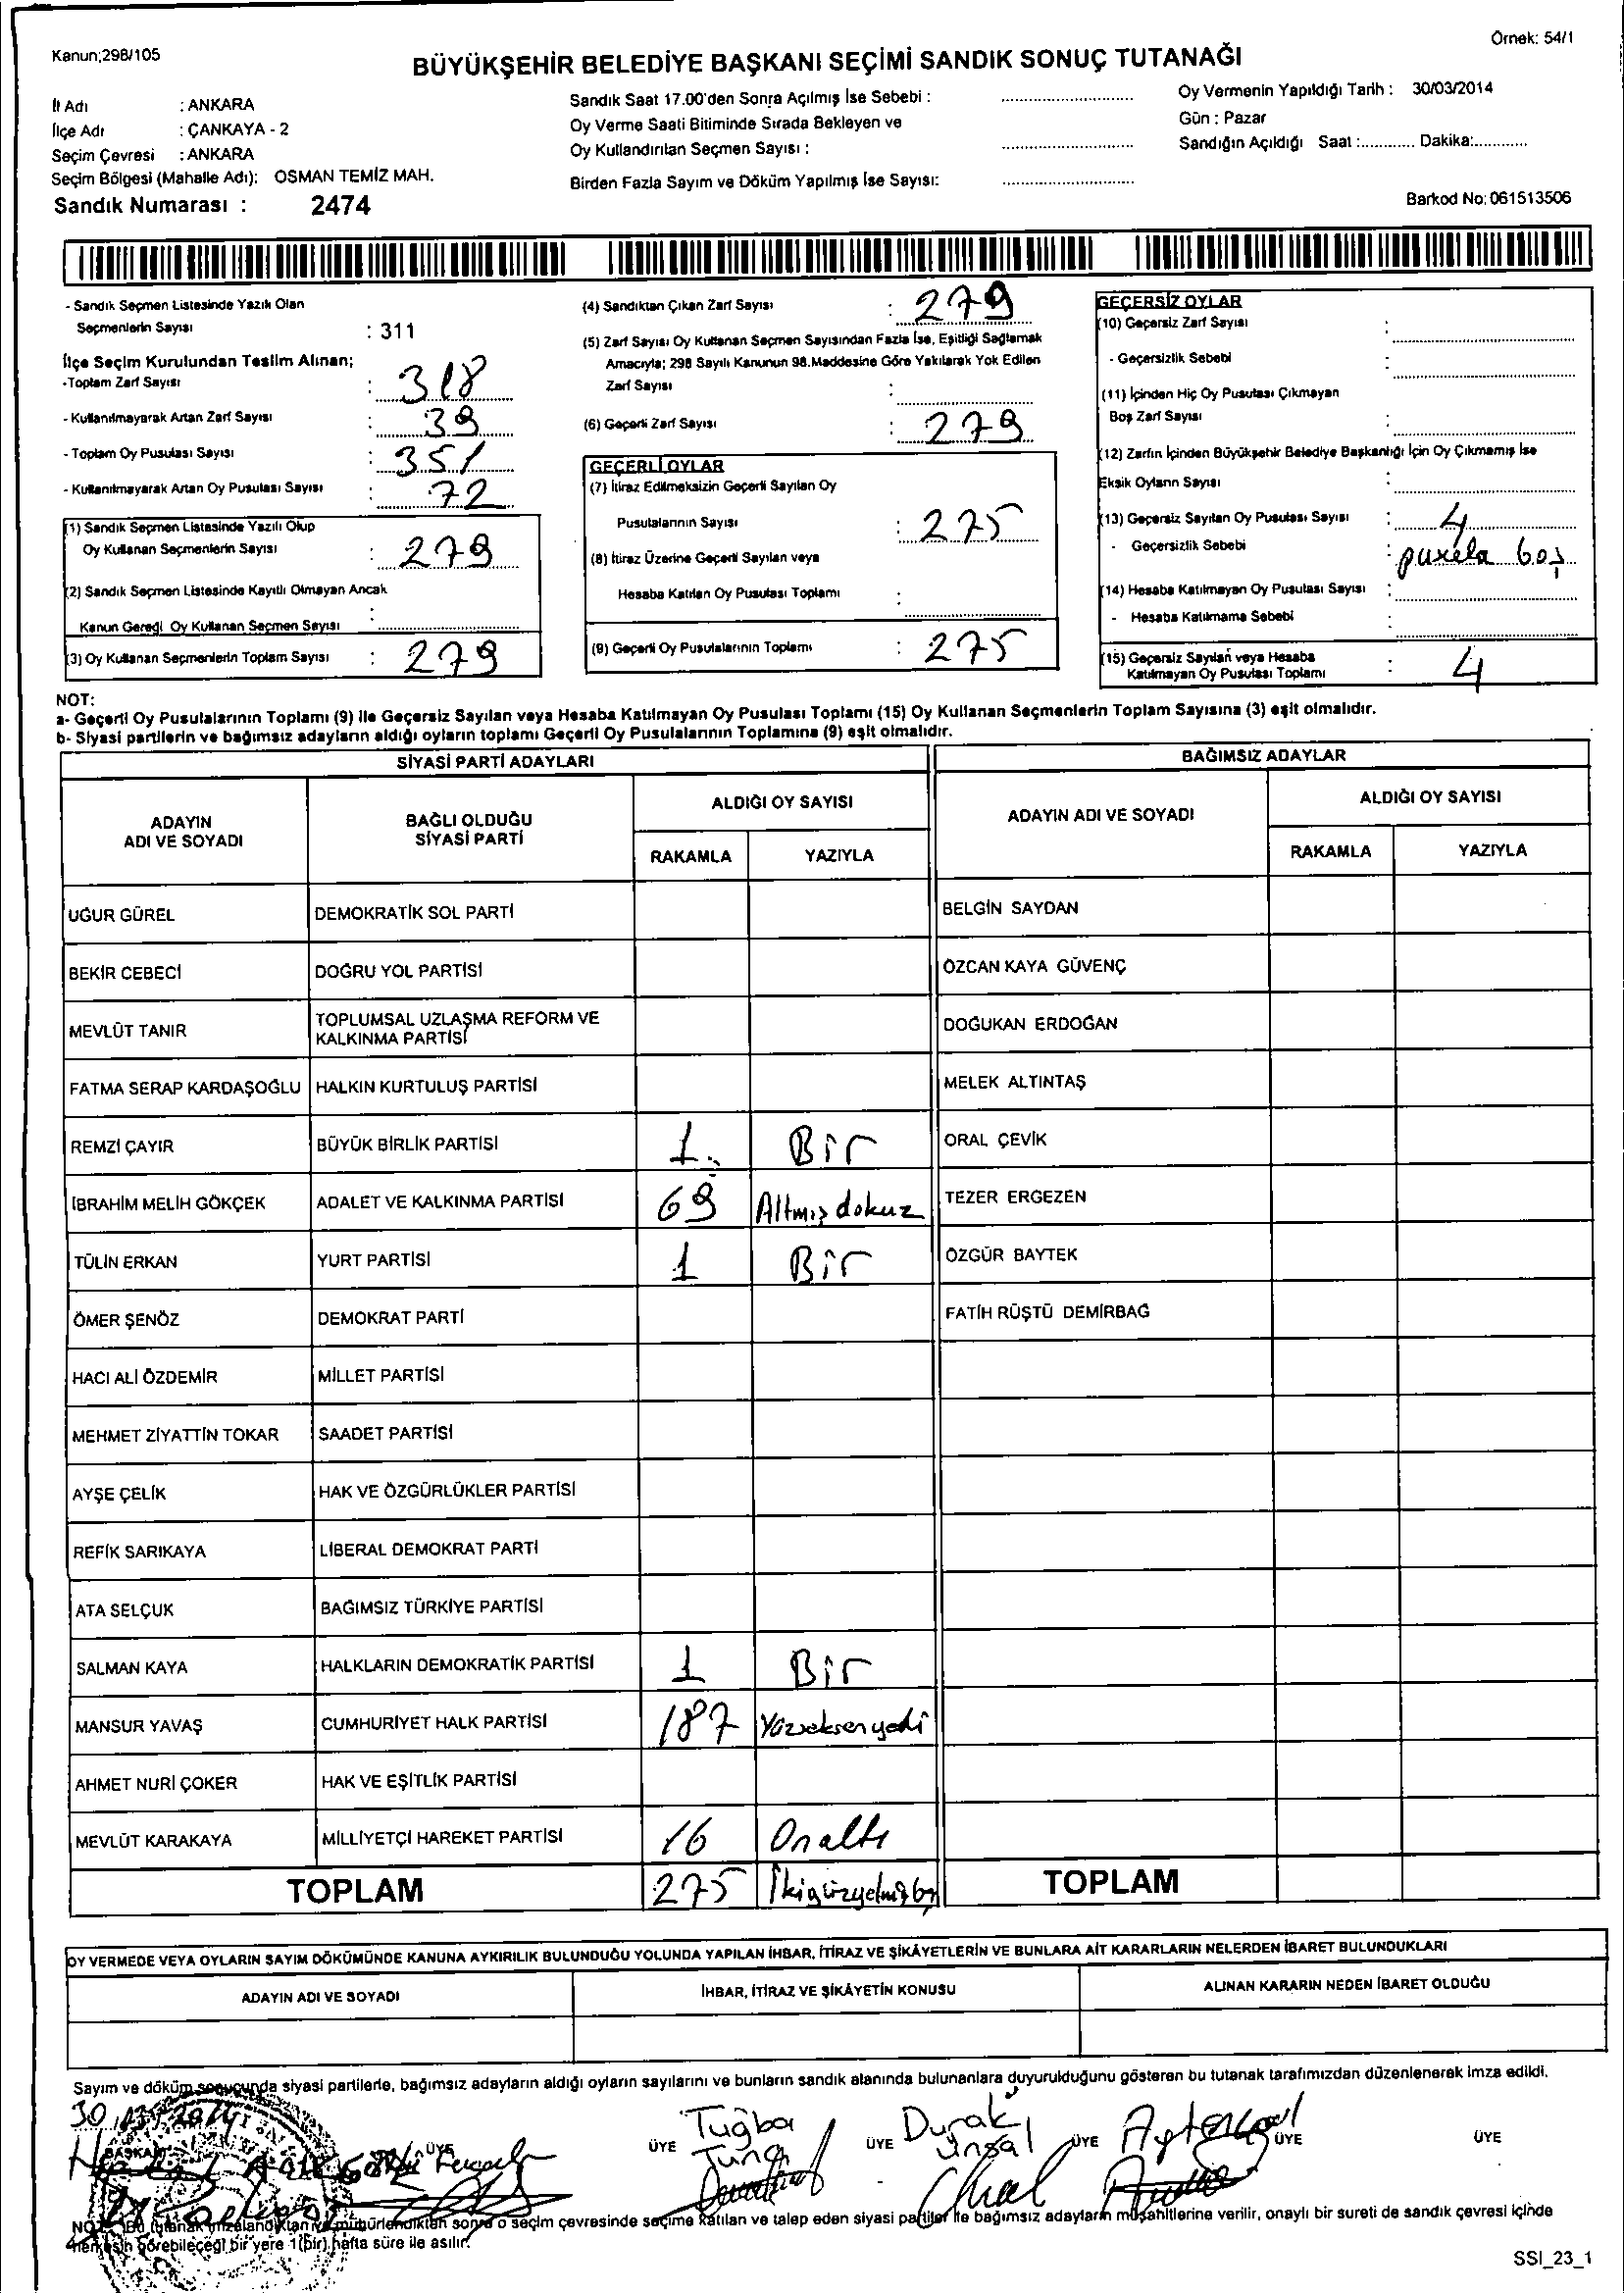 Kanun;298/105
Örnek: 54/1
BÜYÜKŞEHİR BELEDİYE BAŞKANI SEÇİMİ SANDIK SONUÇ TUTANAĞI
İl Adı : ANKARA
İlçe Adı : ÇANKAYA - 2
Seçim Çevresi : ANKARA
Seçim Bölgesi (Mahalle Adı): OSMAN TEMİZ MAH.
Sandık Numarası : 2474
Sandık Saat 17.00'den Sonra Açılmış İse Sebebi :
Oy Verme Saati Bitiminde Sırada Bekleyen ve
Oy Kullandırılan Seçmen Sayısı :
Birden Fazla Sayım ve Döküm Yapılmış İse Sayısı:
Oy Vermenin Yapıldığı Tarih : 30/03/2014
Gün : Pazar
Sandığın Açıldığı Saat :............ Dakika:............
Barkod No: 061513506
- Sandık Seçmen Listesinde Yazılı Olan
Seçmenlerin Sayısı : 311
İlçe Seçim Kurulundan Teslim Alınan;
-Toplam Zarf Sayısı : 318
- Kullanılmayarak Artan Zarf Sayısı : 39
- Toplam Oy Pusulası Sayısı : 351
- Kullanılmayarak Artan Oy Pusulası Sayısı : 72
(1) Sandık Seçmen Listesinde Yazılı Olup
Oy Kullanan Seçmenlerin Sayısı : 279
(2) Sandık Seçmen Listesinde Kayıtlı Olmayan Ancak
Kanun Gereği Oy Kullanan Seçmen Sayısı :
(3) Oy Kullanan Seçmenlerin Toplam Sayısı : 279
(4) Sandıktan Çıkan Zarf Sayısı : 279
(5) Zarf Sayısı Oy Kullanan Seçmen Sayısından Fazla İse, Eşitliği Sağlamak
Amacıyla; 298 Sayılı Kanunun 98.Maddesine Göre Yakılarak Yok Edilen
Zarf Sayısı :
(6) Geçerli Zarf Sayısı : 279
GEÇERLİ OYLAR
(7) İtiraz Edilmeksizin Geçerli Sayılan Oy
Pusulalarının Sayısı : 275
(8) İtiraz Üzerine Geçerli Sayılan veya
Hesaba Katılan Oy Pusulası Toplamı :
(9) Geçerli Oy Pusulalarının Toplamı : 275
GEÇERSİZ OYLAR
(10) Geçersiz Zarf Sayısı :
- Geçersizlik Sebebi :
(11) İçinden Hiç Oy Pusulası Çıkmayan
Boş Zarf Sayısı :
(12) Zarfın İçinden Büyükşehir Belediye Başkanlığı İçin Oy Çıkmamış İse
Eksik Oyların Sayısı :
(13) Geçersiz Sayılan Oy Pusulası Sayısı : 4
- Geçersizlik Sebebi : pusela boş
(14) Hesaba Katılmayan Oy Pusulası Sayısı :
- Hesaba Katılmama Sebebi :
(15) Geçersiz Sayılan veya Hesaba
Katılmayan Oy Pusulası Toplamı : 4
NOT:
a- Geçerli Oy Pusulalarının Toplamı (9) ile Geçersiz Sayılan veya Hesaba Katılmayan Oy Pusulası Toplamı (15) Oy Kullanan Seçmenlerin Toplam Sayısına (3) eşit olmalıdır.
b- Siyasi partilerin ve bağımsız adayların aldığı oyların toplamı Geçerli Oy Pusulalarının Toplamına (9) eşit olmalıdır.
SİYASİ PARTİ ADAYLARI BAĞIMSIZ ADAYLAR
ADAYIN ADI VE SOYADI BAĞLI OLDUĞU SİYASİ PARTİ ALDIĞI OY SAYISI ADAYIN ADI VE SOYADI ALDIĞI OY SAYISI
RAKAMLA YAZIYLA RAKAMLA YAZIYLA
UĞUR GÜREL DEMOKRATİK SOL PARTİ BELGİN SAYDAN
BEKİR CEBECİ DOĞRU YOL PARTİSİ ÖZCAN KAYA GÜVENÇ
MEVLÜT TANIR TOPLUMSAL UZLAŞMA REFORM VE KALKINMA PARTİSİ DOĞUKAN ERDOĞAN
FATMA SERAP KARDAŞOĞLU HALKIN KURTULUŞ PARTİSİ MELEK ALTINTAŞ
REMZİ ÇAYIR BÜYÜK BİRLİK PARTİSİ 1 Bir ORAL ÇEVİK
İBRAHİM MELİH GÖKÇEK ADALET VE KALKINMA PARTİSİ 69 Altmış dokuz TEZER ERGEZEN
TÜLİN ERKAN YURT PARTİSİ 1 Bir ÖZGÜR BAYTEK
ÖMER ŞENÖZ DEMOKRAT PARTİ FATİH RÜŞTÜ DEMİRBAĞ
HACI ALİ ÖZDEMİR MİLLET PARTİSİ
MEHMET ZİYATTİN TOKAR SAADET PARTİSİ
AYŞE ÇELİK HAK VE ÖZGÜRLÜKLER PARTİSİ
REFİK SARIKAYA LİBERAL DEMOKRAT PARTİ
ATA SELÇUK BAĞIMSIZ TÜRKİYE PARTİSİ
SALMAN KAYA HALKLARIN DEMOKRATİK PARTİSİ 1 Bir
MANSUR YAVAŞ CUMHURİYET HALK PARTİSİ 187 Yüzseksenyedi
AHMET NURİ ÇOKER HAK VE EŞİTLİK PARTİSİ
MEVLÜT KARAKAYA MİLLİYETÇİ HAREKET PARTİSİ 16 Onaltı
TOPLAM 275 İkiyüzyetmişbeş TOPLAM
OY VERMEDE VEYA OYLARIN SAYIM DÖKÜMÜNDE KANUNA AYKIRILIK BULUNDUĞU YOLUNDA YAPILAN İHBAR, İTİRAZ VE ŞİKÂYETLERİN VE BUNLARA AİT KARARLARIN NELERDEN İBARET BULUNDUKLARI
ADAYIN ADI VE SOYADI İHBAR, İTİRAZ VE ŞİKÂYETİN KONUSU ALINAN KARARIN NEDEN İBARET OLDUĞU
Sayım ve döküm sonucunda siyasi partilerle, bağımsız adayların aldığı oyların sayılarını ve bunların sandık alanında bulunanlara duyurulduğunu gösteren bu tutanak tarafımızdan düzenlenerek imza edildi.
30.03.2014
BAŞKAN ÜYE ÜYE Tuğba Tunç ÜYE Durak Ünsal ÜYE ÜYE ÜYE
NOT: Bu tutanak imzalandıktan ve mühürlendikten sonra o seçim çevresinde seçime katılan ve talep eden siyasi partiler ile bağımsız adayların müşahitlerine verilir, onaylı bir sureti de sandık çevresi içinde
herkesin görebileceği bir yere 1(bir) hafta süre ile asılır.
SSI_23_1